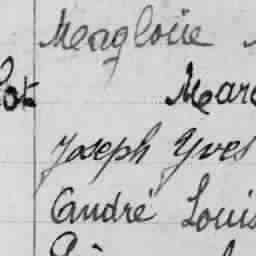 Magloire
Marc
Joseph Yves
André Louis